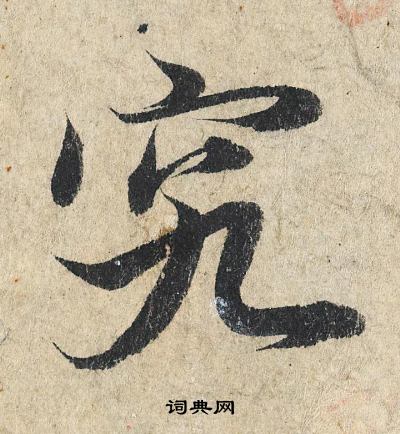 究
词典网